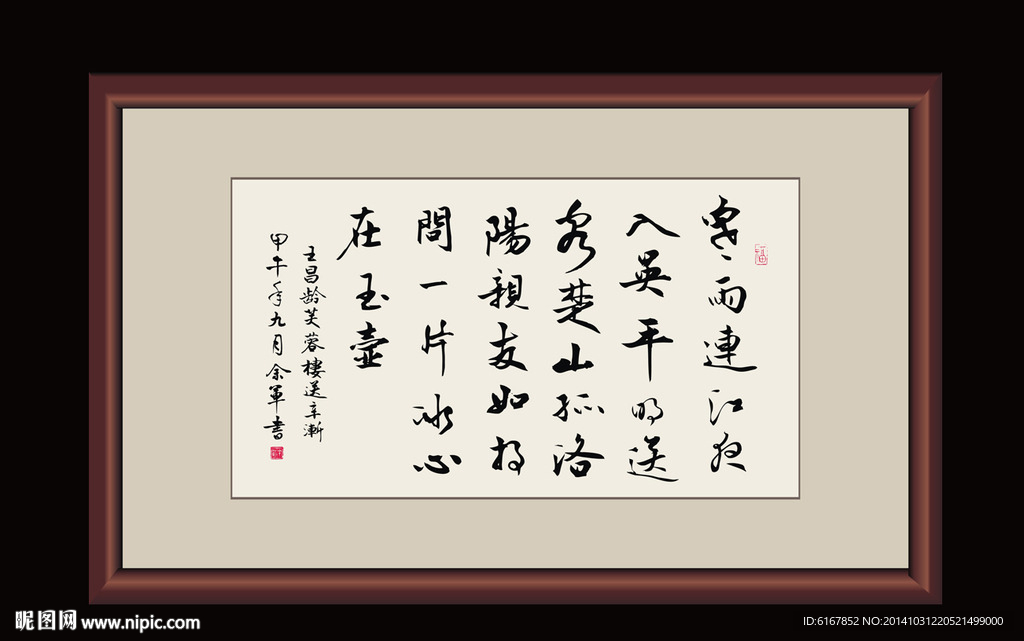 寒雨連江夜
入英平明送
客楚山孤洛
陽親友如相
問一片冰心
在玉壺
王昌龄芙蓉樓送辛漸
甲午年九月余軍書
昵图网 www.nipic.com
ID:6167852 NO:20141031220521499000